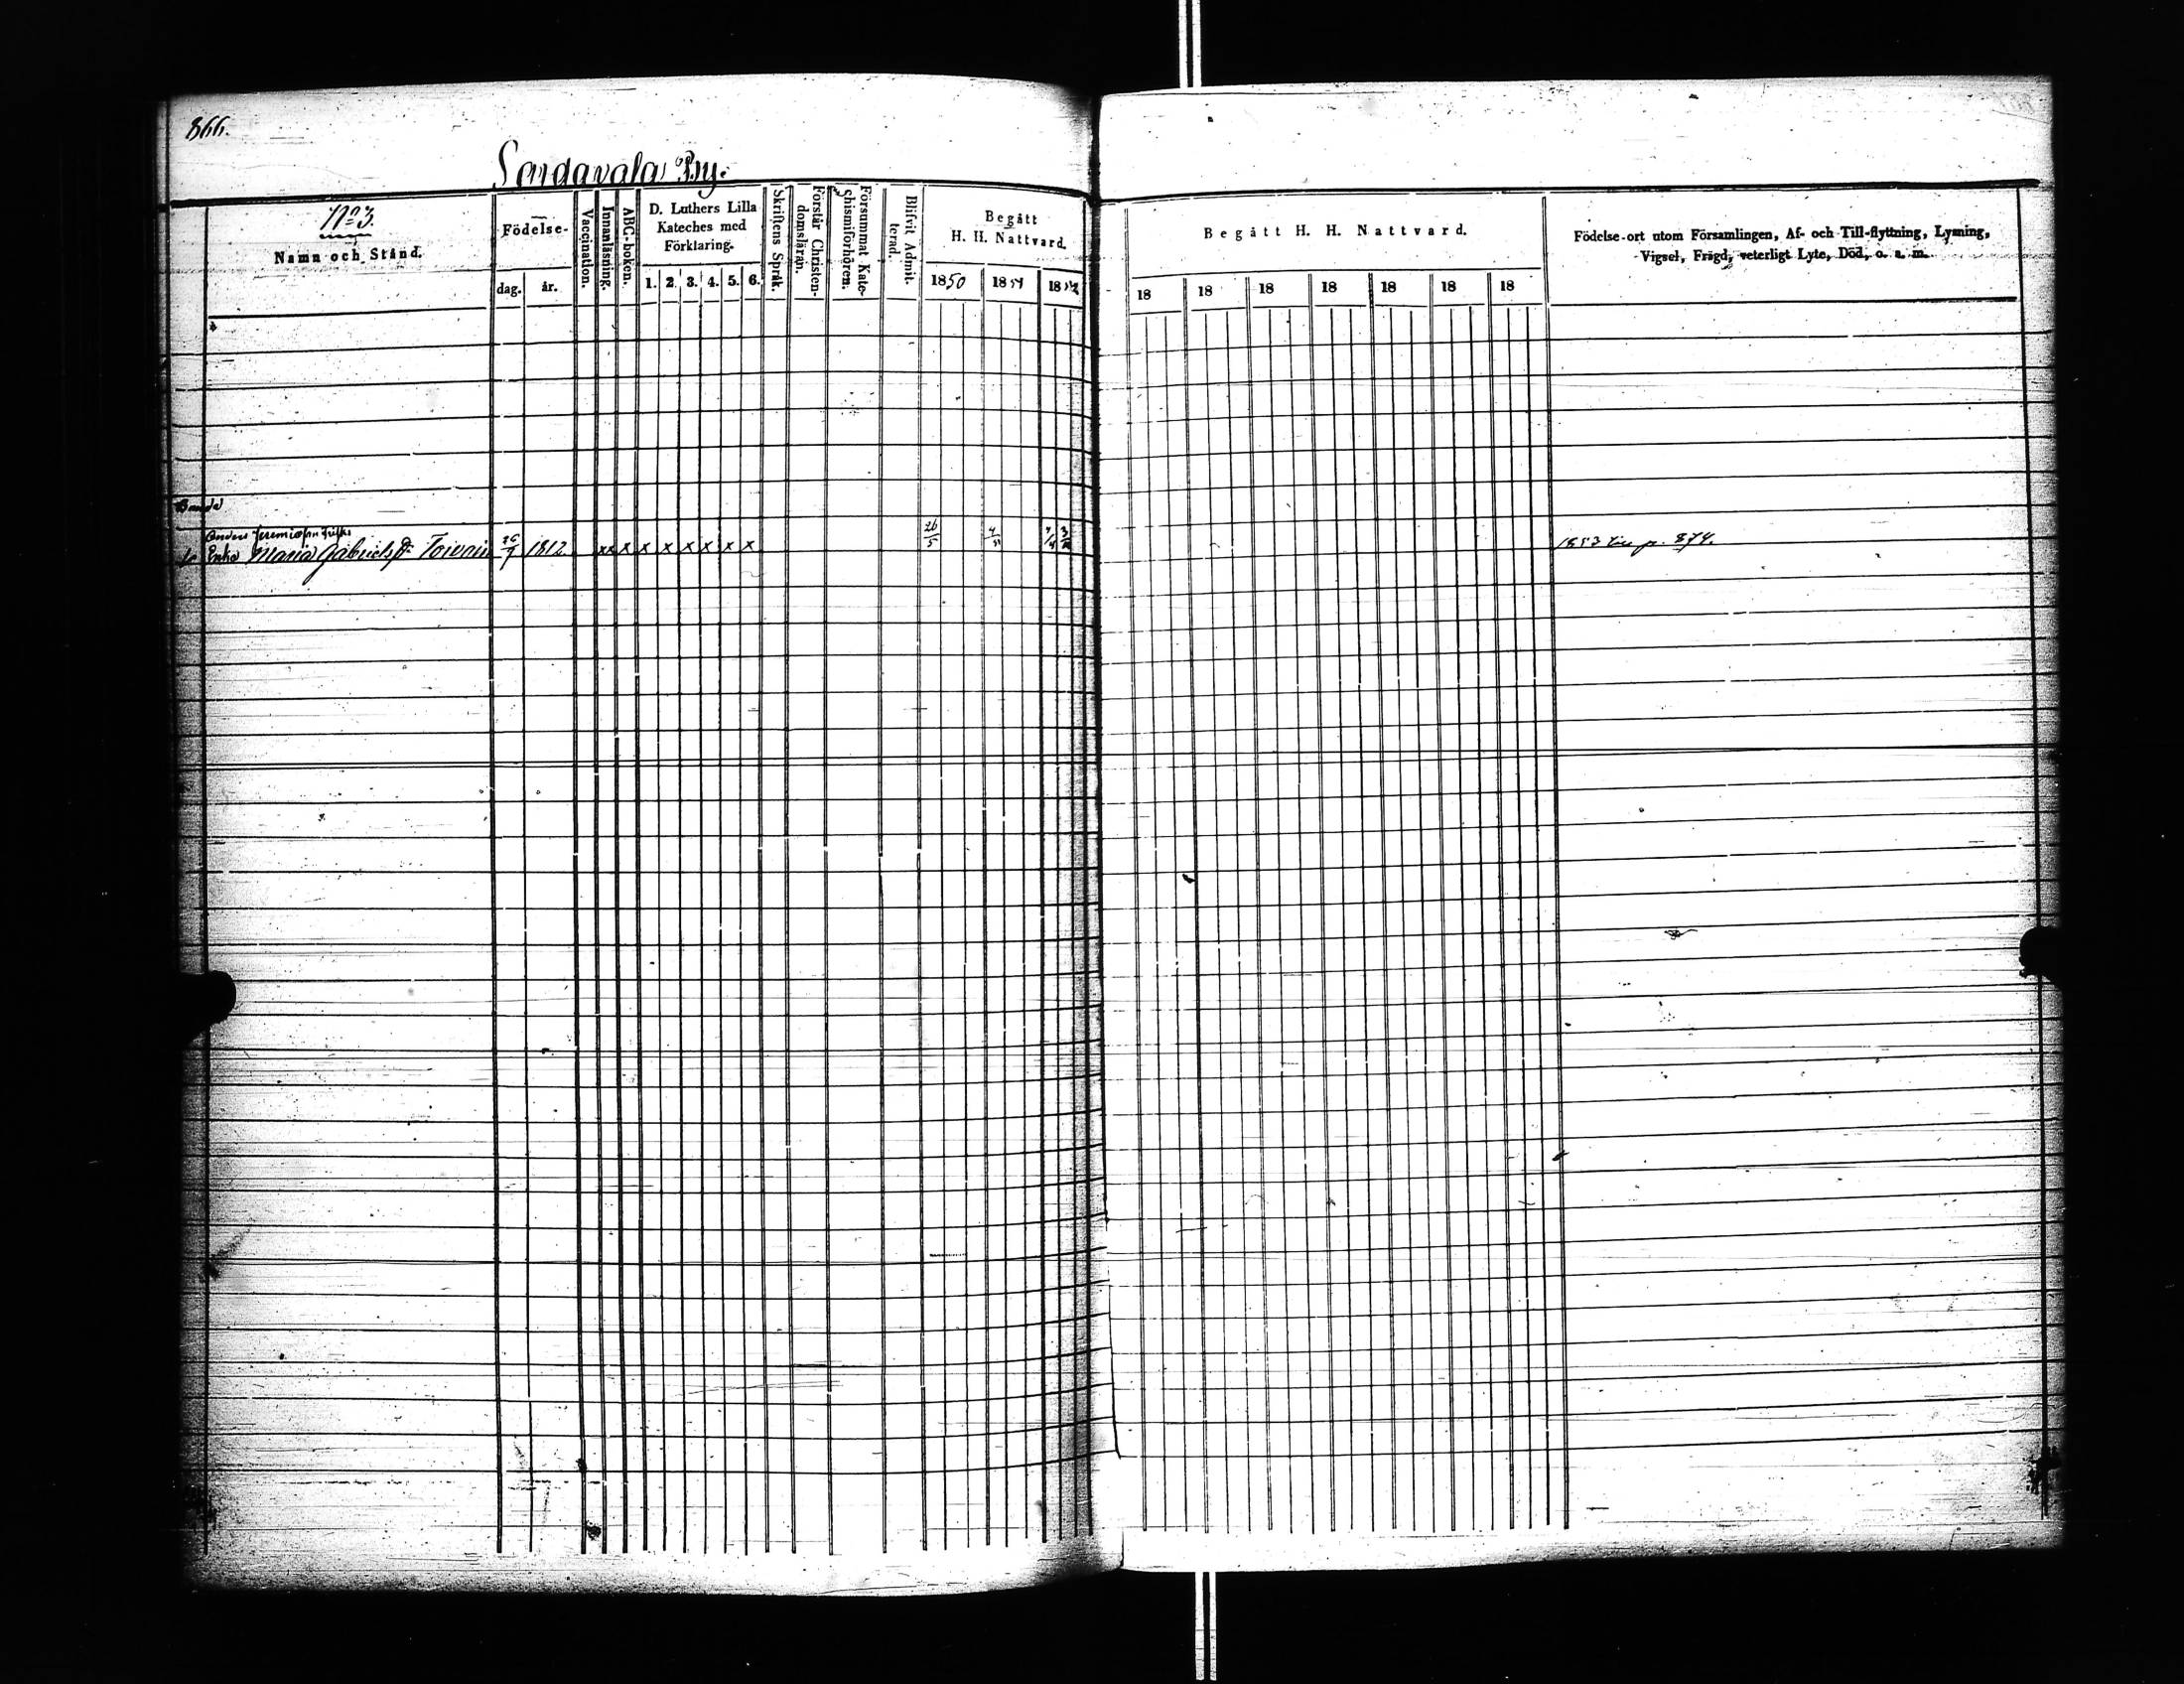 866.
Sordavala By.
No 3.
Namn och Stånd.
Födelse-
dag. år.
Vaccination.
Innanläsning.
ABC-boken.
D. Luthers Lilla
Kateches med
Förklaring.
1. 2. 3. 4. 5. 6.
Skriftens Språk.
Förstår Christen-
domsläran.
Försummat Kate-
chismiförhören.
Blifvit Admit-
terad.
Begått
H. H. Nattvard.
1850 1851 1852
Begått H. H. Nattvard.
18 18 18 18 18 18 18
Födelse-ort utom Församlingen, Af- och Till-flyttning, Lysning,
Vigsel, Frägd, veterligt Lyte, Död, o. s. m.
Enka Maria Gabrielsdr 1812 xx x x x x x x x 26/5
1853 p. 874.